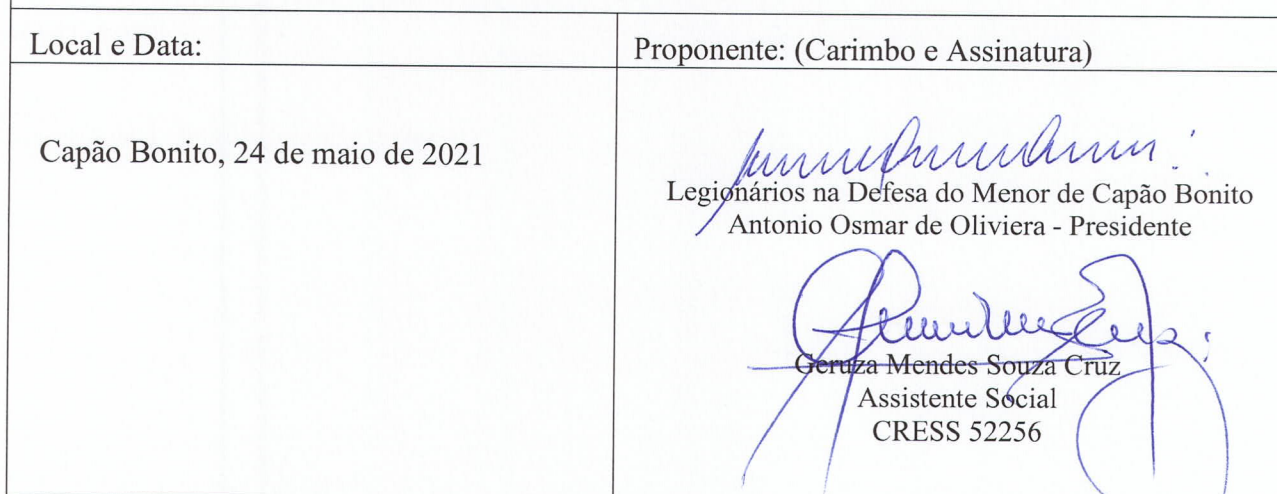 Local e Data:
Proponente: (Carimbo e Assinatura)
Capão Bonito, 24 de maio de 2021
Legionários na Defesa do Menor de Capão Bonito
Antonio Osmar de Oliviera - Presidente
Geruza Mendes Souza Cruz
Assistente Social
CRESS 52256